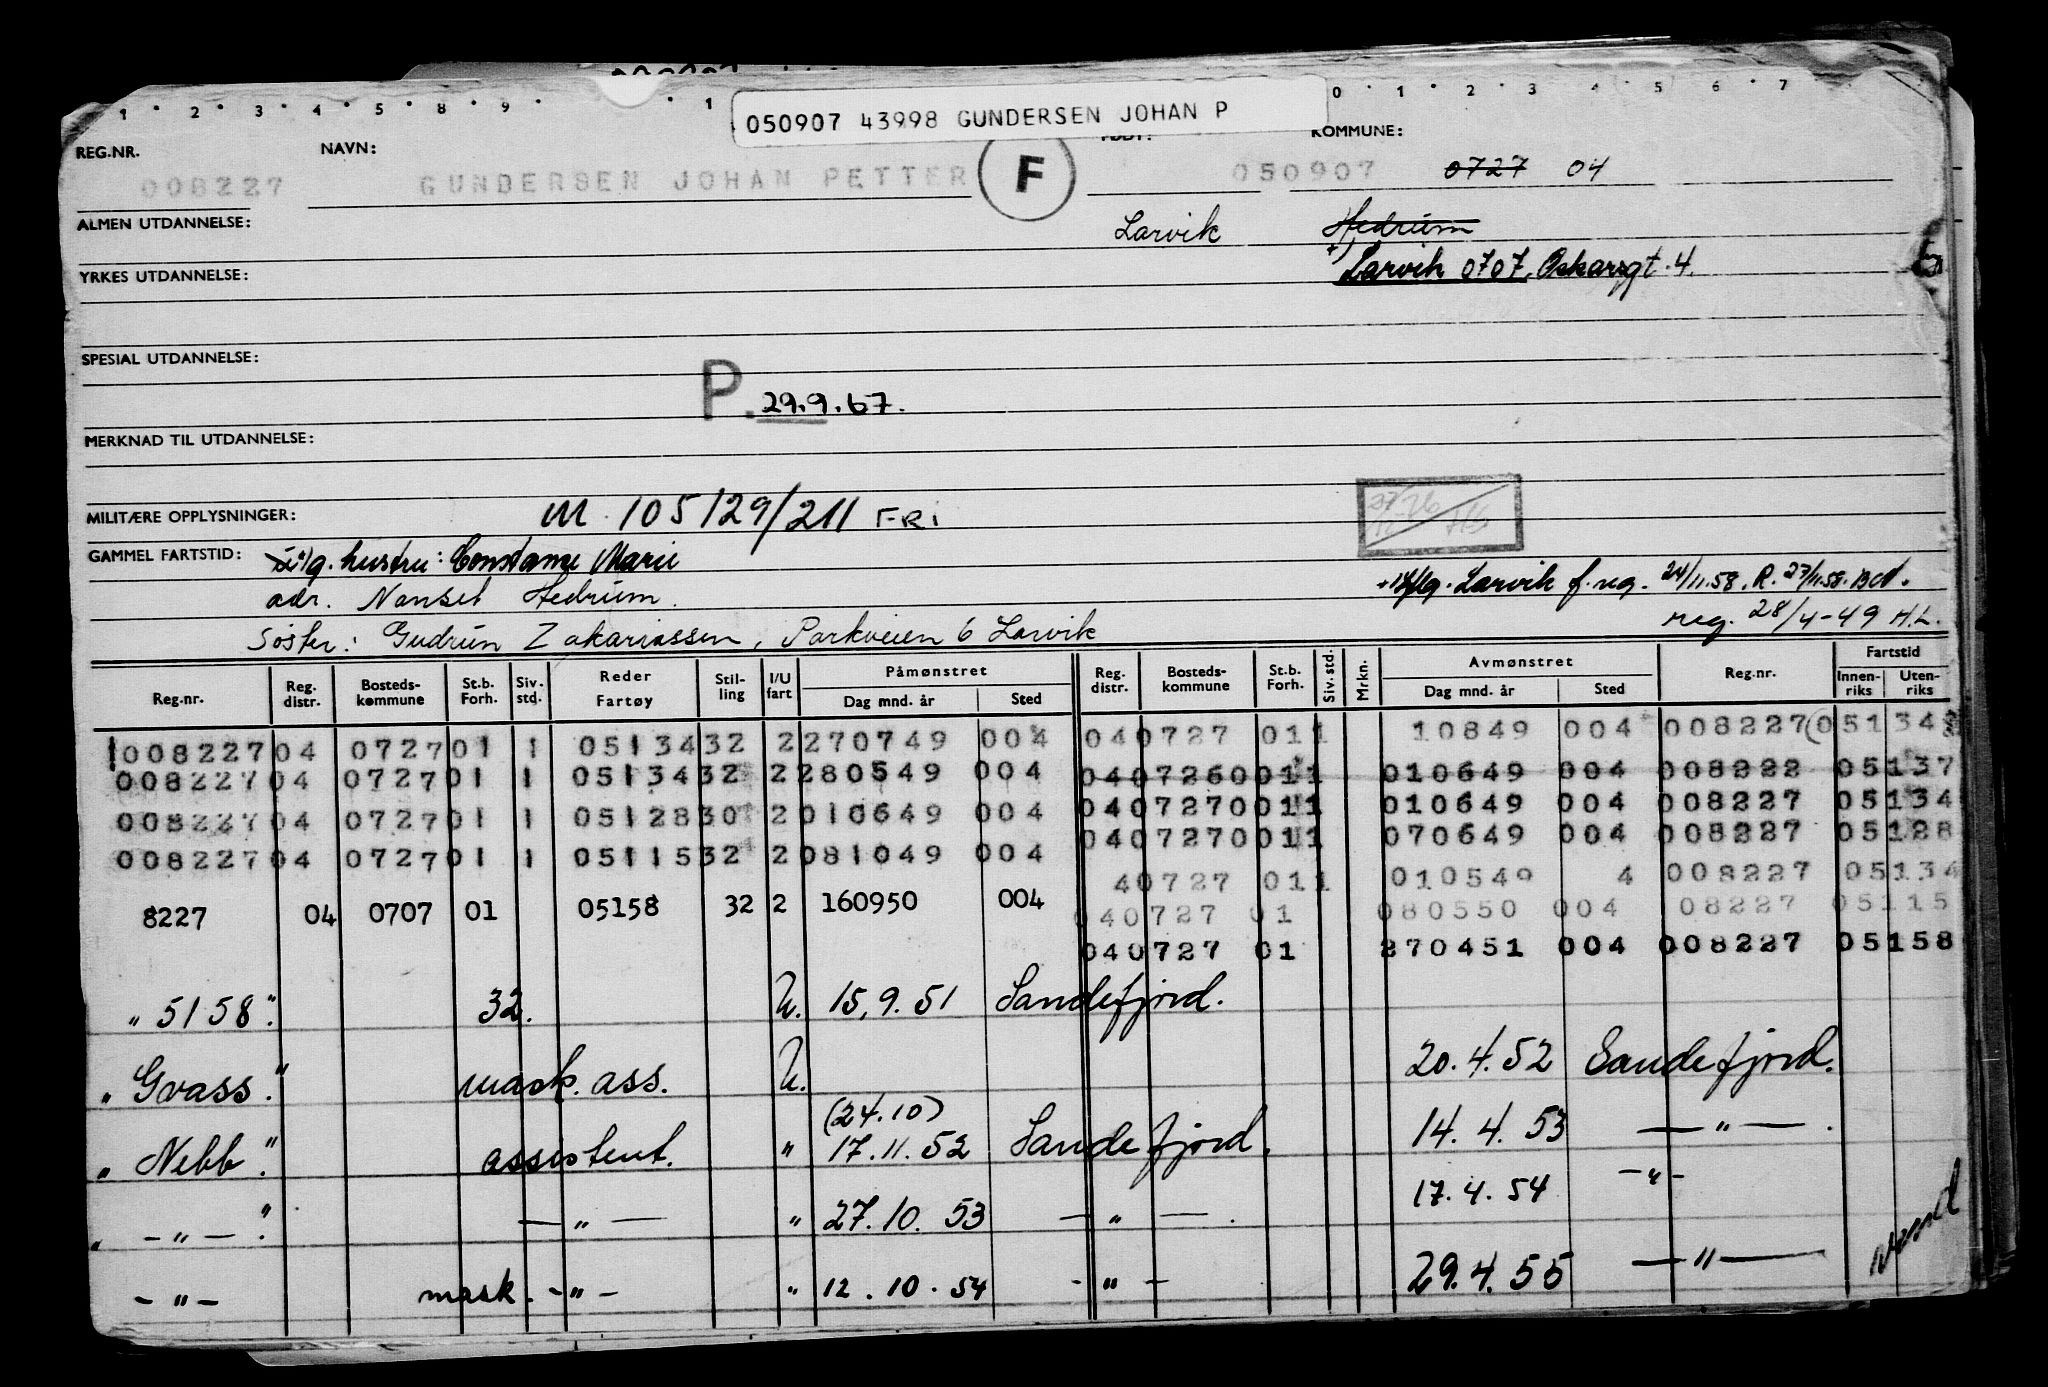 1 · 2 · 3 · 4 · 5 · 8 · 9 · · 1 0 · 1 · 2 · 3 4 · 5 · 6 · 7
050907 43998 GUNDERSEN JOHAN P
REG.NR. NAVN: FØDT: KOMMUNE:
008227 GUNDERSEN JOHAN PETTER F 050907 0727 04
ALMEN UTDANNELSE: Larvik Hedrum
YRKES UTDANNELSE: +) Larvik 0707, Oskarsgt. 4.
SPESIAL UTDANNELSE:
P. 29.9.67.
MERKNAD TIL UTDANNELSE:
MILITÆRE OPPLYSNINGER: M 105129/211 FRI
GAMMEL FARTSTID: hustru: Constanse Marie
Larvik f. reg. 24/11.58. R. 27/11.58.
adr. Nanset Hedrum.
reg. 28/4-49 H.L.
Søster: Gudrun Zakariassen, Parkveien 6 Larvik
Reg.nr. Reg. distr. Bosteds- kommune St.b. Forh. Siv. std. Reder Fartøy Stil- ling I/U fart Påmønstret Dag mnd. år Sted Reg. distr. Bosteds- kommune St.b. Forh. Siv. std. Mrkn. Avmønstret Dag mnd. år Sted Reg.nr. Fartstid Innen- riks Uten- riks
008227 04 0727 01 1 05134 32 2 270749 004 04 0727 01 1 10849 004 008227 05134
008227 04 0727 01 1 05134 32 2 280549 004 04 0726 001 1 010649 004 008222 05137
008227 04 0727 01 1 05128 30 2 010649 004 04 0727 001 1 010649 004 008227 05134
04 0727 001 1 070649 004 008227 05128
008227 04 0727 01 1 05115 32 2 081049 004
4 0727 01 1 010549 4 008227 05134
8227 04 0707 01 05158 32 2 160950 004
04 0727 01 080550 004 08227 05115
04 0727 01 270451 004 008227 05158
" 5158". 32. U. 15.9.51 Sandefjord.
" Gvass". mask. ass. U. 20.4.52 Sandefjord.
(24.10)
" Nebb". assistent. " 17.11.52 Sandefjord. 14.4.53 — " — .
" — " — ". — " — " 27.10.53 — " — . 17.4.54 — " —
— " — mask. — " — " 12.10.54 - " - 29.4.55 — " —
vend